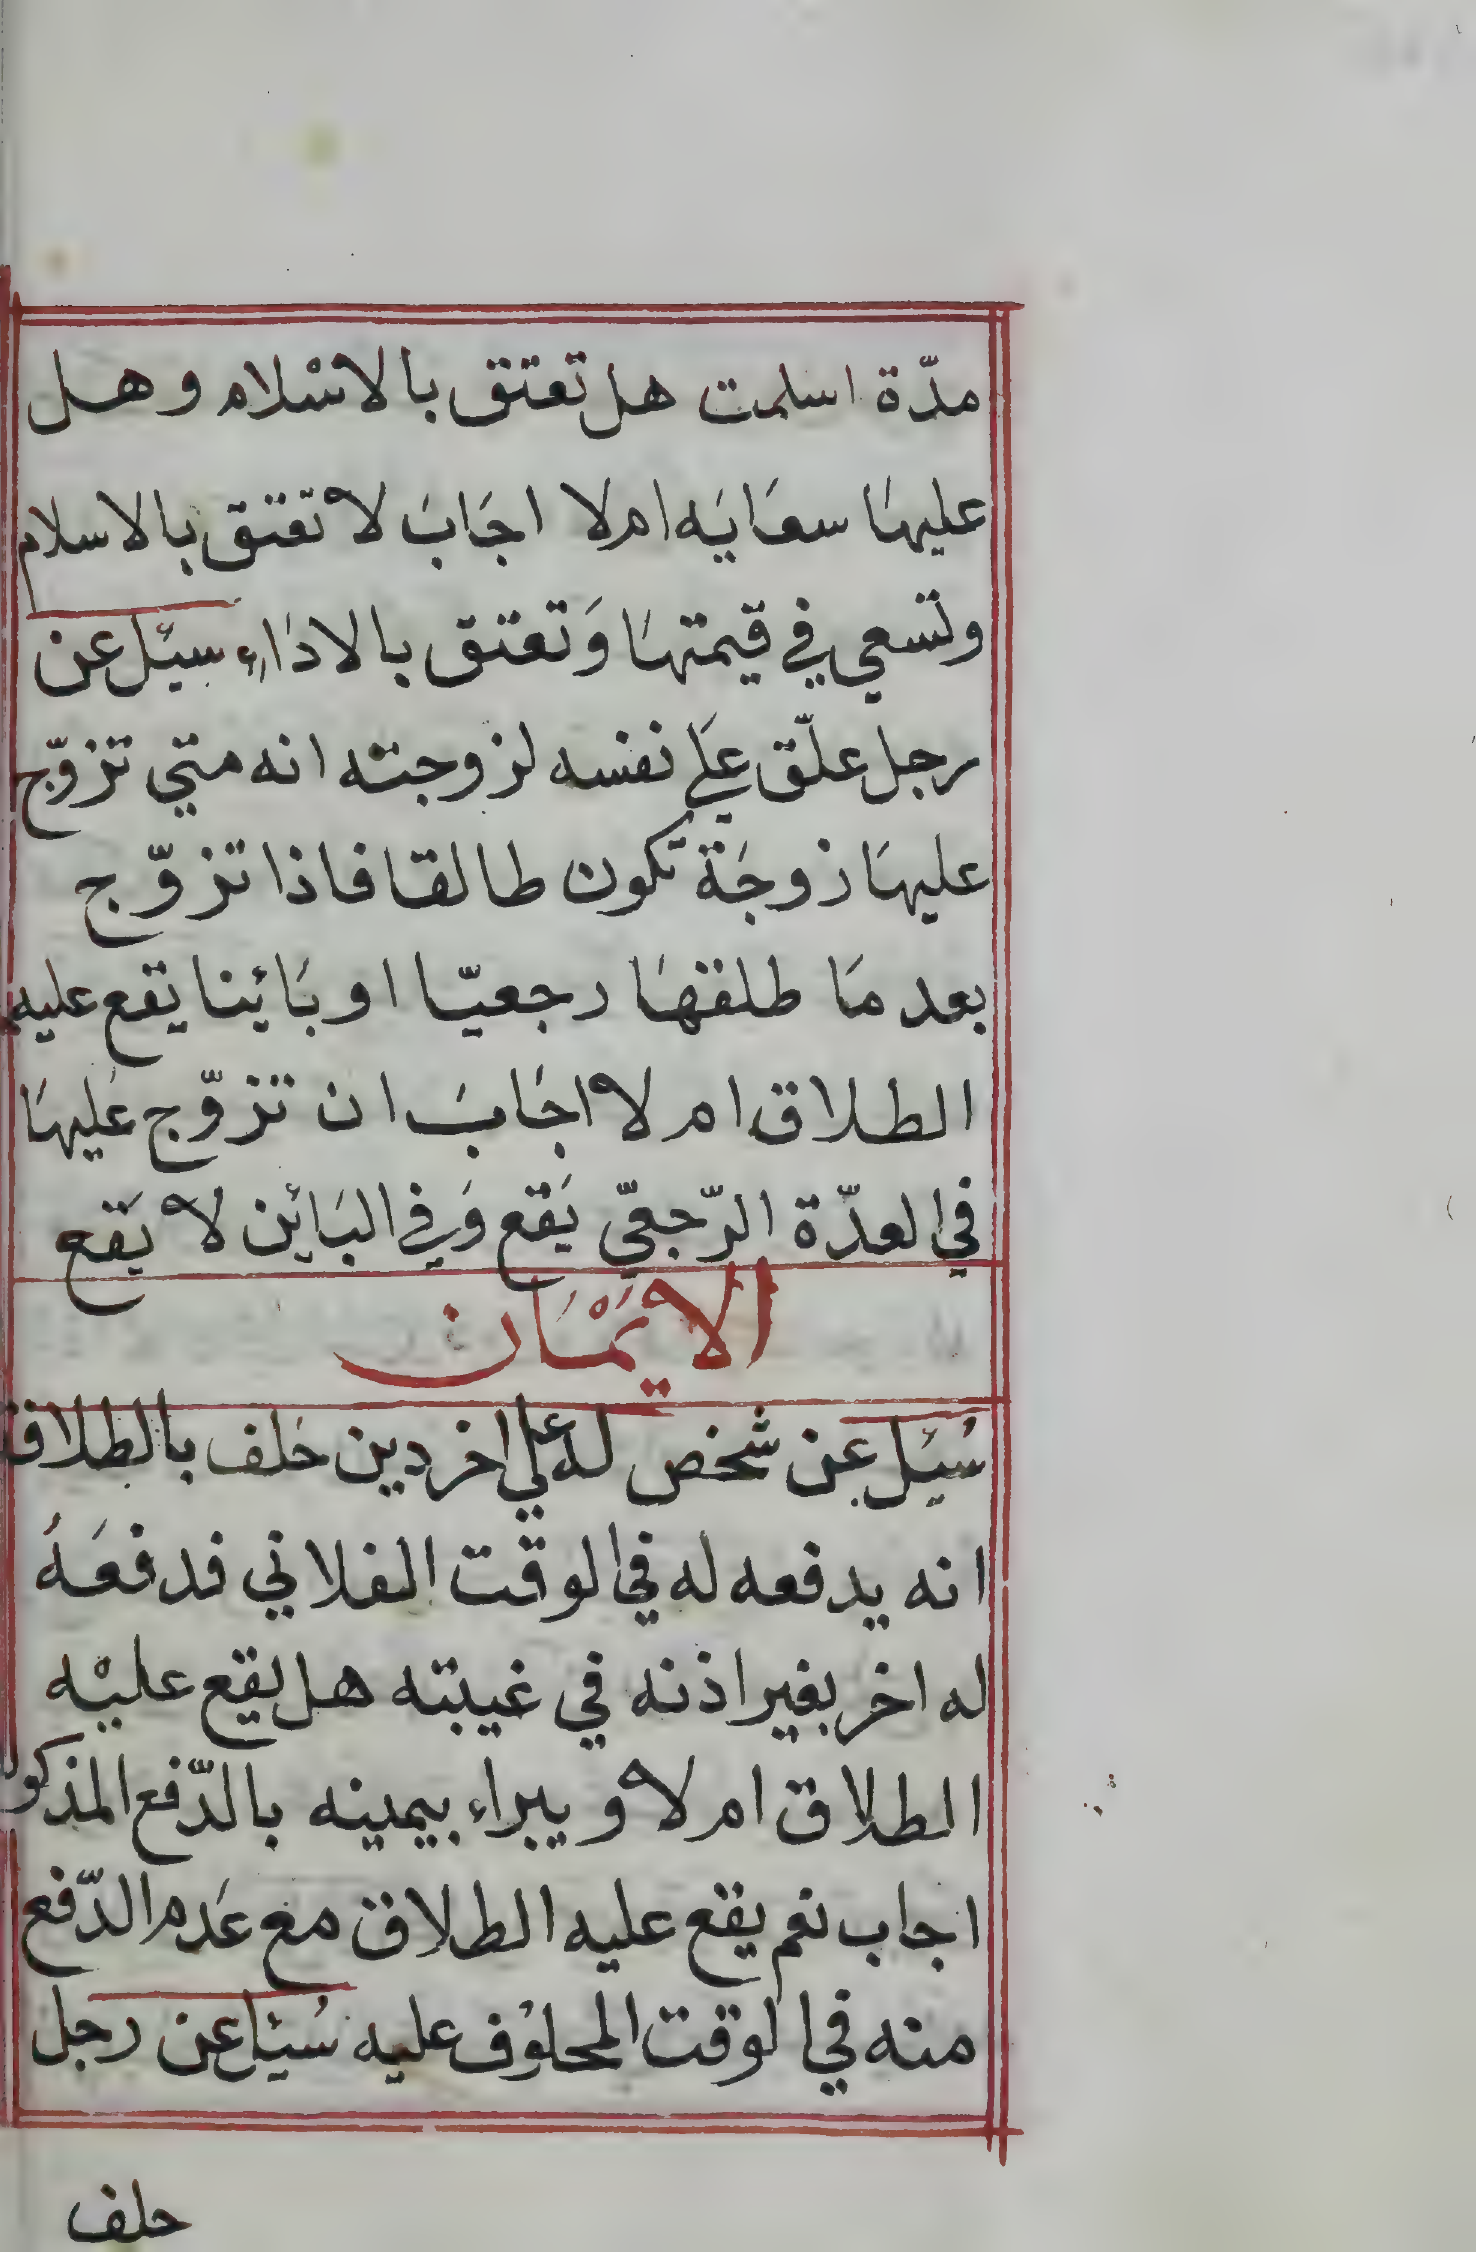 مدّة اسلمت هل تعتق بالاسْلام وهل
عليهَا سعَايَه ام لا اجَابَ لا تعتق بالاسلام
وتسعي في قيمتهَا وَتعتق بالادَاء سئل عن
رجل علّق علَي نفسه لزوجته انه متي تزوّج
عليهَا زوجَة تكون طالقا فاذا تزوّج
بعد مَا طلقهَا رجعيّا او بَائنا يقع عليه
الطلاق ام لا اجَابَ ان تزوّج عليهَا
في العدّة الرّجعيّ يَقع وَفي البَائن لا يَقع
الايْمَان
سُئل عن شخص له علي اخر دين حَلف بالطلاق
انه يدفعه له في الوقت الفلاني فدفعَهُ
له اخر بغير اذنه في غيبته هل يقع عليْه
الطلاق ام لا و يبراء بيمينه بالدّفع المذكور
اجاب نعم يقع عليه الطلاق مع عَدم الدّفع
منه في الوقت المحلوُف عليه سُئل عن رجل
حلف